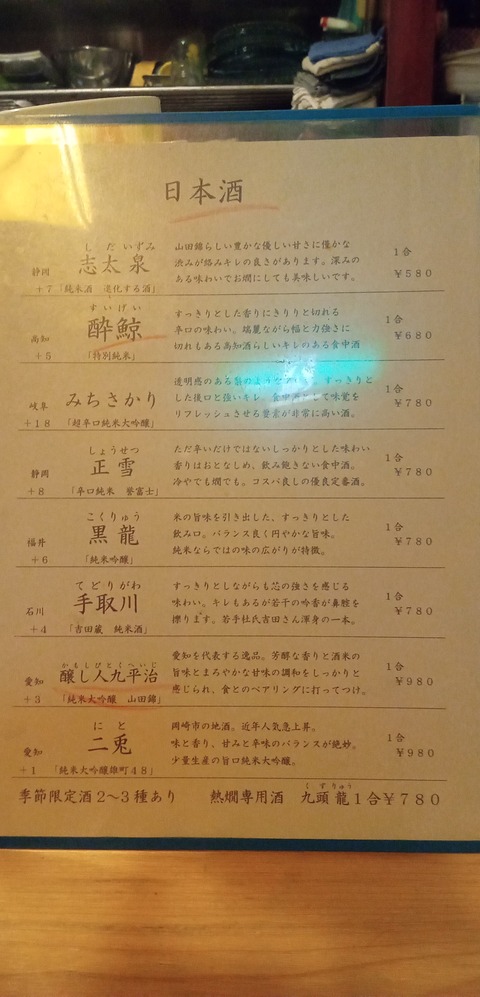 日本酒
しだいずみ
静岡 志太泉
+7「純米酒 進化する酒」
山田錦らしい豊かな優しい甘さに僅かな
渋みが絡みキレの良さがあります。深みの
ある味わいでお燗にしても美味しいです。
1合
￥580
すいげい
高知 酔鯨
+5「特別純米」
すっきりとした香りにきりりと切れる
辛口の味わい。端麗ながら幅と力強さに
切れもある高知酒らしいキレのある食中酒
1合
￥680
岐阜 みちさかり
+18「超辛口純米大吟醸」
透明感のある すっきりと
した後口と強いキレ。食中酒として味覚を
リフレッシュさせる要素が非常に高い酒。
1合
￥780
しょうせつ
静岡 正雪
+8「辛口純米 誉富士」
ただ辛いだけではないしっかりとした味わい
香りはおとなしめ、飲み飽きない食中酒。
冷やでも燗でも。コスパ良しの優良定番酒。
1合
￥780
こくりゅう
福井 黒龍
+6「純米吟醸」
米の旨味を引き出した、すっきりとした
飲み口。バランス良く円やかな旨味。
純米ならではの味の広がりが特徴。
1合
￥780
てどりがわ
石川 手取川
+4「吉田蔵 純米酒」
すっきりとしながらも芯の強さを感じる
味わい。キレもあるが若干の吟香が鼻腔を
擽ります。若手杜氏吉田さん渾身の一本。
1合
￥780
かもしびとくへいじ
愛知 醸し人九平治
+3「純米大吟醸 山田錦」
愛知を代表する逸品。芳醇な香りと酒米の
旨味とまろやかな甘味の調和をしっかりと
感じられ、食とのペアリングに打ってつけ。
1合
￥980
にと
愛知 二兎
+1「純米大吟醸雄町48」
岡崎市の地酒。近年人気急上昇。
味と香り、甘みと辛味のバランスが絶妙。
少量生産の旨口純米大吟醸。
1合
￥980
くずりゅう
季節限定酒2～3種あり 熱燗専用酒 九頭龍1合￥780